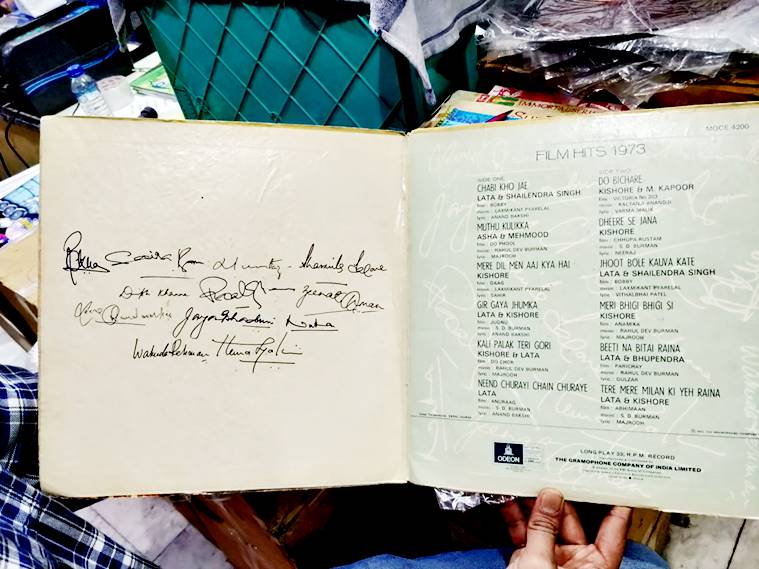 Rekha Saira Banu Mumtaz Sharmila Tagore
Zeenat Aman
Jaya Bhaduri
Waheeda Rehman Hema Malini
MOCE 4200
FILM HITS 1973
SIDE ONE
CHABI KHO JAE
LATA & SHAILENDRA SINGH
film : BOBBY
music : LAXMIKANT PYARELAL
lyric : ANAND BAKSHI
MUTHU KULIKKA
ASHA & MEHMOOD
film : DO PHOOL
music : RAHUL DEV BURMAN
lyric : MAJROOH
MERE DIL MEN AAJ KYA HAI
KISHORE
film : DAAG
music : LAXMIKANT PYARELAL
lyric : SAHIR
GIR GAYA JHUMKA
LATA & KISHORE
film : JUGNU
music : S. D. BURMAN
lyric : ANAND BAKSHI
KALI PALAK TERI GORI
KISHORE & LATA
film : DO CHOR
music : RAHUL DEV BURMAN
lyric : MAJROOH
NEEND CHURAYI CHAIN CHURAYE
LATA
film : ANURAAG
music : S. D. BURMAN
lyric : ANAND BAKSHI
SIDE TWO
DO BICHARE
KISHORE & M. KAPOOR
film : VICTORIA No. 203
music : KALYANJI ANANDJI
lyric : VARMA MALIK
DHEERE SE JANA
KISHORE
film : CHHUPA RUSTAM
music : S. D. BURMAN
lyric : NEERAJ
JHOOT BOLE KAUVA KATE
LATA & SHAILENDRA SINGH
film : BOBBY
music : LAXMIKANT PYARELAL
lyric : VITHALBHAI PATEL
MERI BHIGI BHIGI SI
KISHORE
film : ANAMIKA
music : RAHUL DEV BURMAN
lyric : MAJROOH
BEETI NA BITAI RAINA
LATA & BHUPENDRA
film : PARICHAY
music : RAHUL DEV BURMAN
lyric : GULZAR
TERE MERE MILAN KI YEH RAINA
LATA & KISHORE
film : ABHIMAAN
music : S. D. BURMAN
lyric : MAJROOH
ODEON
LONG PLAY 33⅓ R.P.M. RECORD
THE GRAMOPHONE COMPANY OF INDIA LIMITED